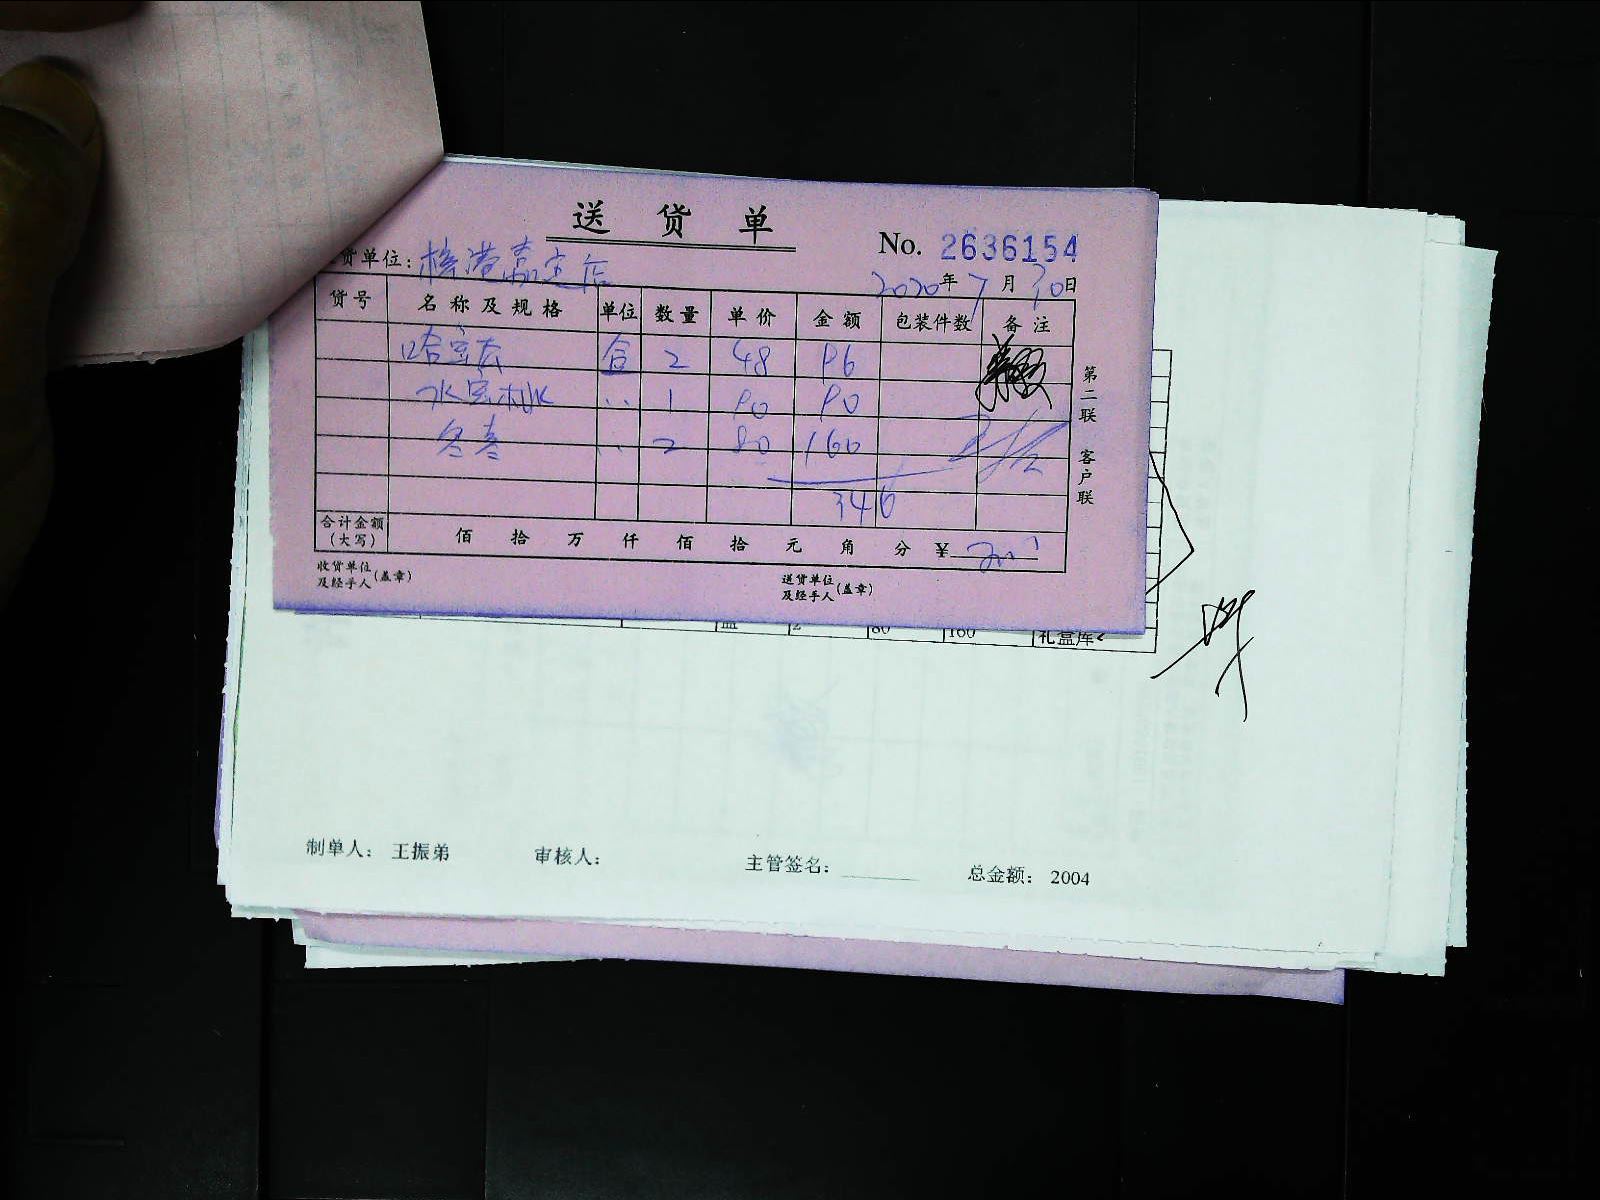 送货单
No. 2636154
货单位：嘉定店
2020年7月30日
货号 名称及规格 单位 数量 单价 金额 包装件数 备注
哈密瓜 合 2 48 96
水蜜桃 〃 1 90 90
冬枣 〃 2 80 160
346
合计金额（大写） 佰 拾 万 仟 佰 拾 元 角 分 ¥
收货单位及经手人（盖章）
送货单位及经手人（盖章）
第二联 客户联
盒 2 80 160 礼盒库
制单人：王振弟 审核人： 主管签名： 总金额：2004